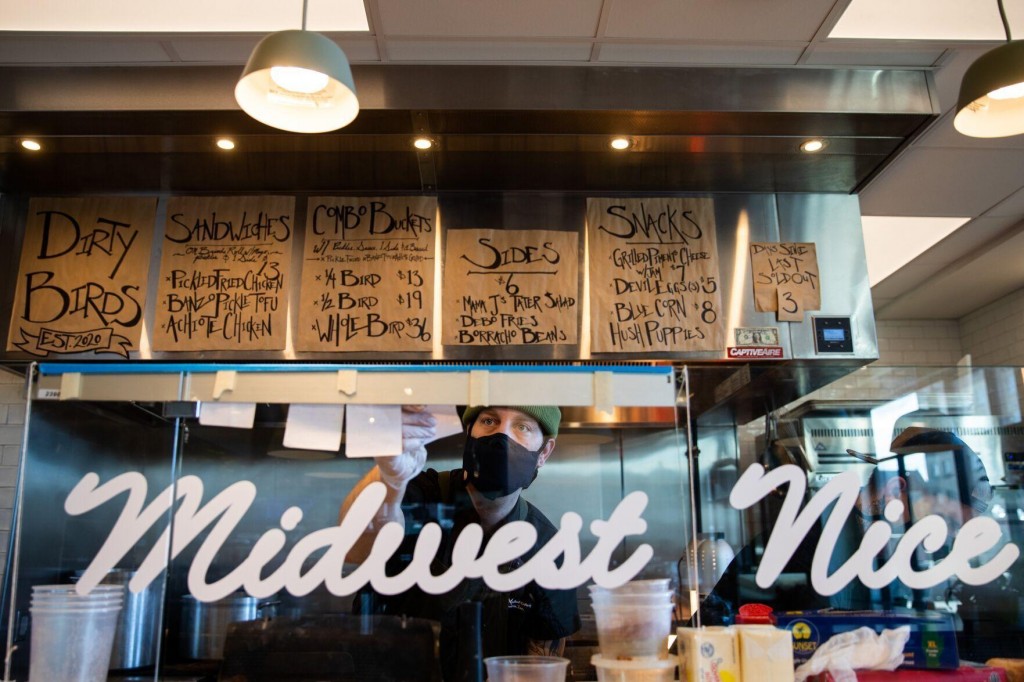 DIRTY
BIRDS
EST. 2020
SANDWICHES
13
• PICKLED FRIED CHICKEN
BANZO PICKLE TOFU
ACHIOTE CHICKEN
COMBO BUCKETS
• 1/4 BIRD • $13
• 1/2 BIRD • $19
• WHOLE BIRD $36
SIDES
6
MAMA J'S TATER SALAD
DEBO FRIES
BORRACHO BEANS
SNACKS
GRILLED PIMENT CHEESE
W/JAM $7
DEVIL EGGS (2) $5
BLUE CORN $8
HUSH PUPPIES
LAST
SOLD OUT
3
CAPTIVEAIRE
Midwest Nice
SUNSET
XL